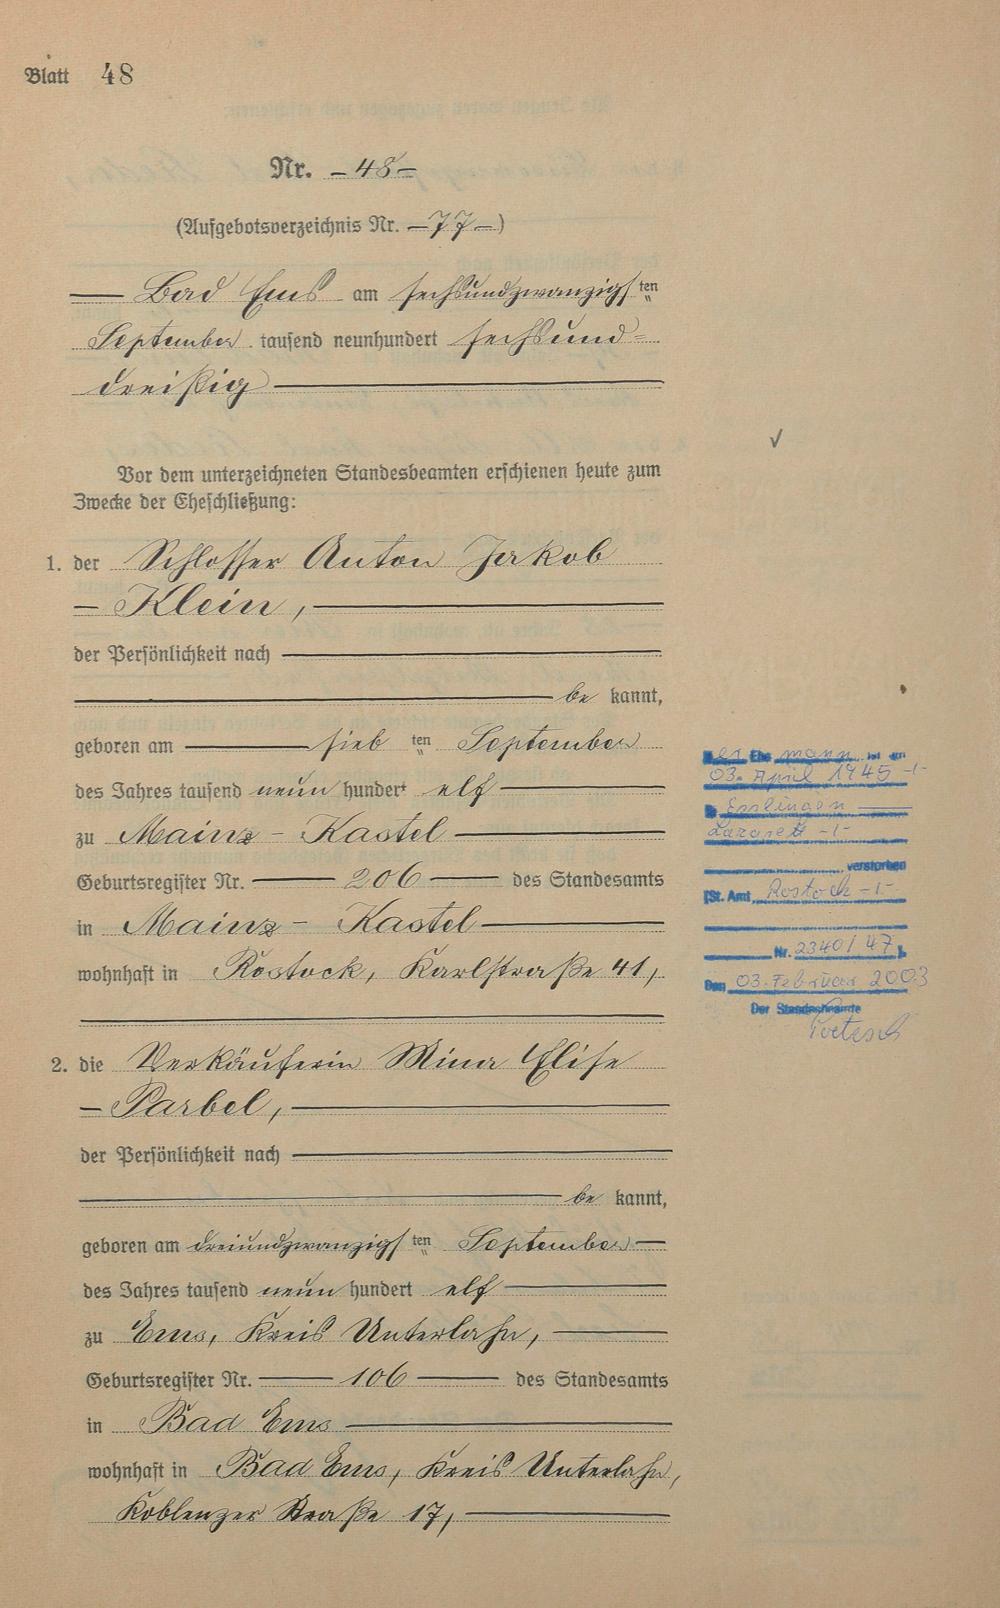 Blatt 48
Nr. – 48 –
(Aufgebotsverzeichnis Nr. – 77 –)
Bad Ems am sechsundzwanzigsten
September tausend neunhundert sechsund=
dreißig
Vor dem unterzeichneten Standesbeamten erschienen heute zum
Zwecke der Eheschließung:
1. der Schlosser Anton Jakob
– Klein,
der Persönlichkeit nach
be kannt,
geboren am sieb ten September
des Jahres tausend neun hundert elf
zu Mainz – Kastel
Geburtsregister Nr. 206 des Standesamts
in Mainz – Kastel
wohnhaft in Rostock, Karlstraße 41,
2. die Verkäuferin Mina Elise
– Parbel,
der Persönlichkeit nach
be kannt,
geboren am dreiundzwanzigsten September
des Jahres tausend neun hundert elf
zu Ems, Kreis Unterlahn,
Geburtsregister Nr. 106 des Standesamts
in Bad Ems
wohnhaft in Bad Ems, Kreis Unterlahn,
Koblenzer Straße 17,
Der Ehemann ist am
03. April 1945 -/-
in Esslingen
Lazarett -/-
verstorben
(St. Amt Rostock -/-
Nr. 2340/47).
Den 03. Februar 2003
Der Standesbeamte